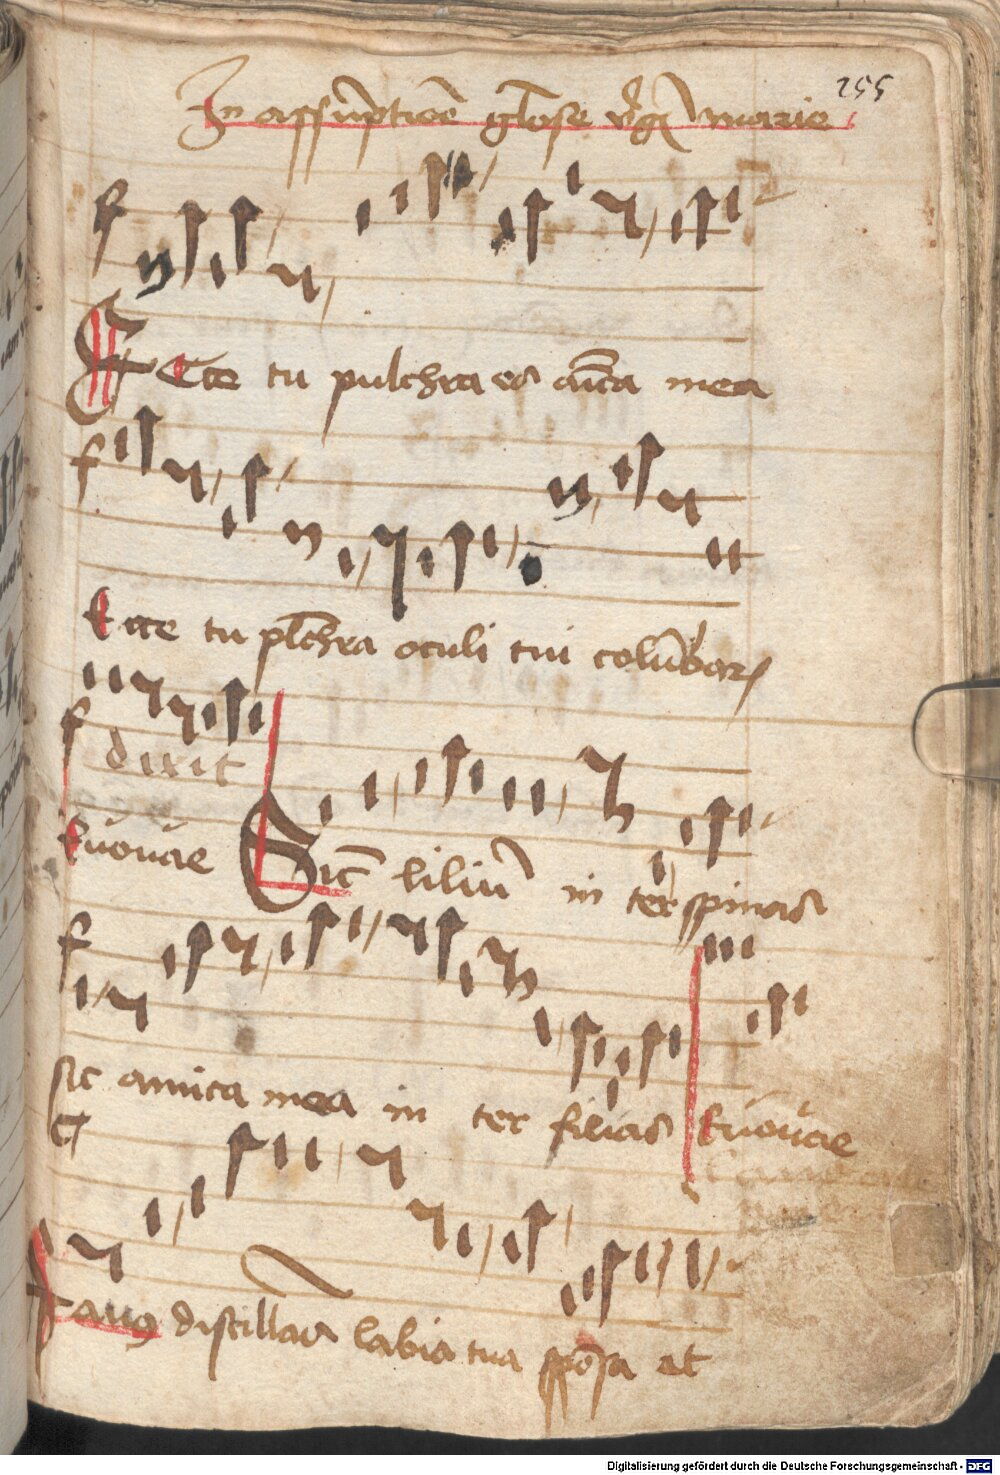 255
In assūptiōe glōse v̄gīs marie
Ecce tu pulchra es aīca mea
Ecce tu plchra oculi tui colūbarꝝ
dixit
Euouae Sicͭ liliū in ter spinas
sic amica mea in ter filias Euouae
Fauꝰ distillans labia tua spōsa et
Digitalisierung gefördert durch die Deutsche Forschungsgemeinschaft - DFG